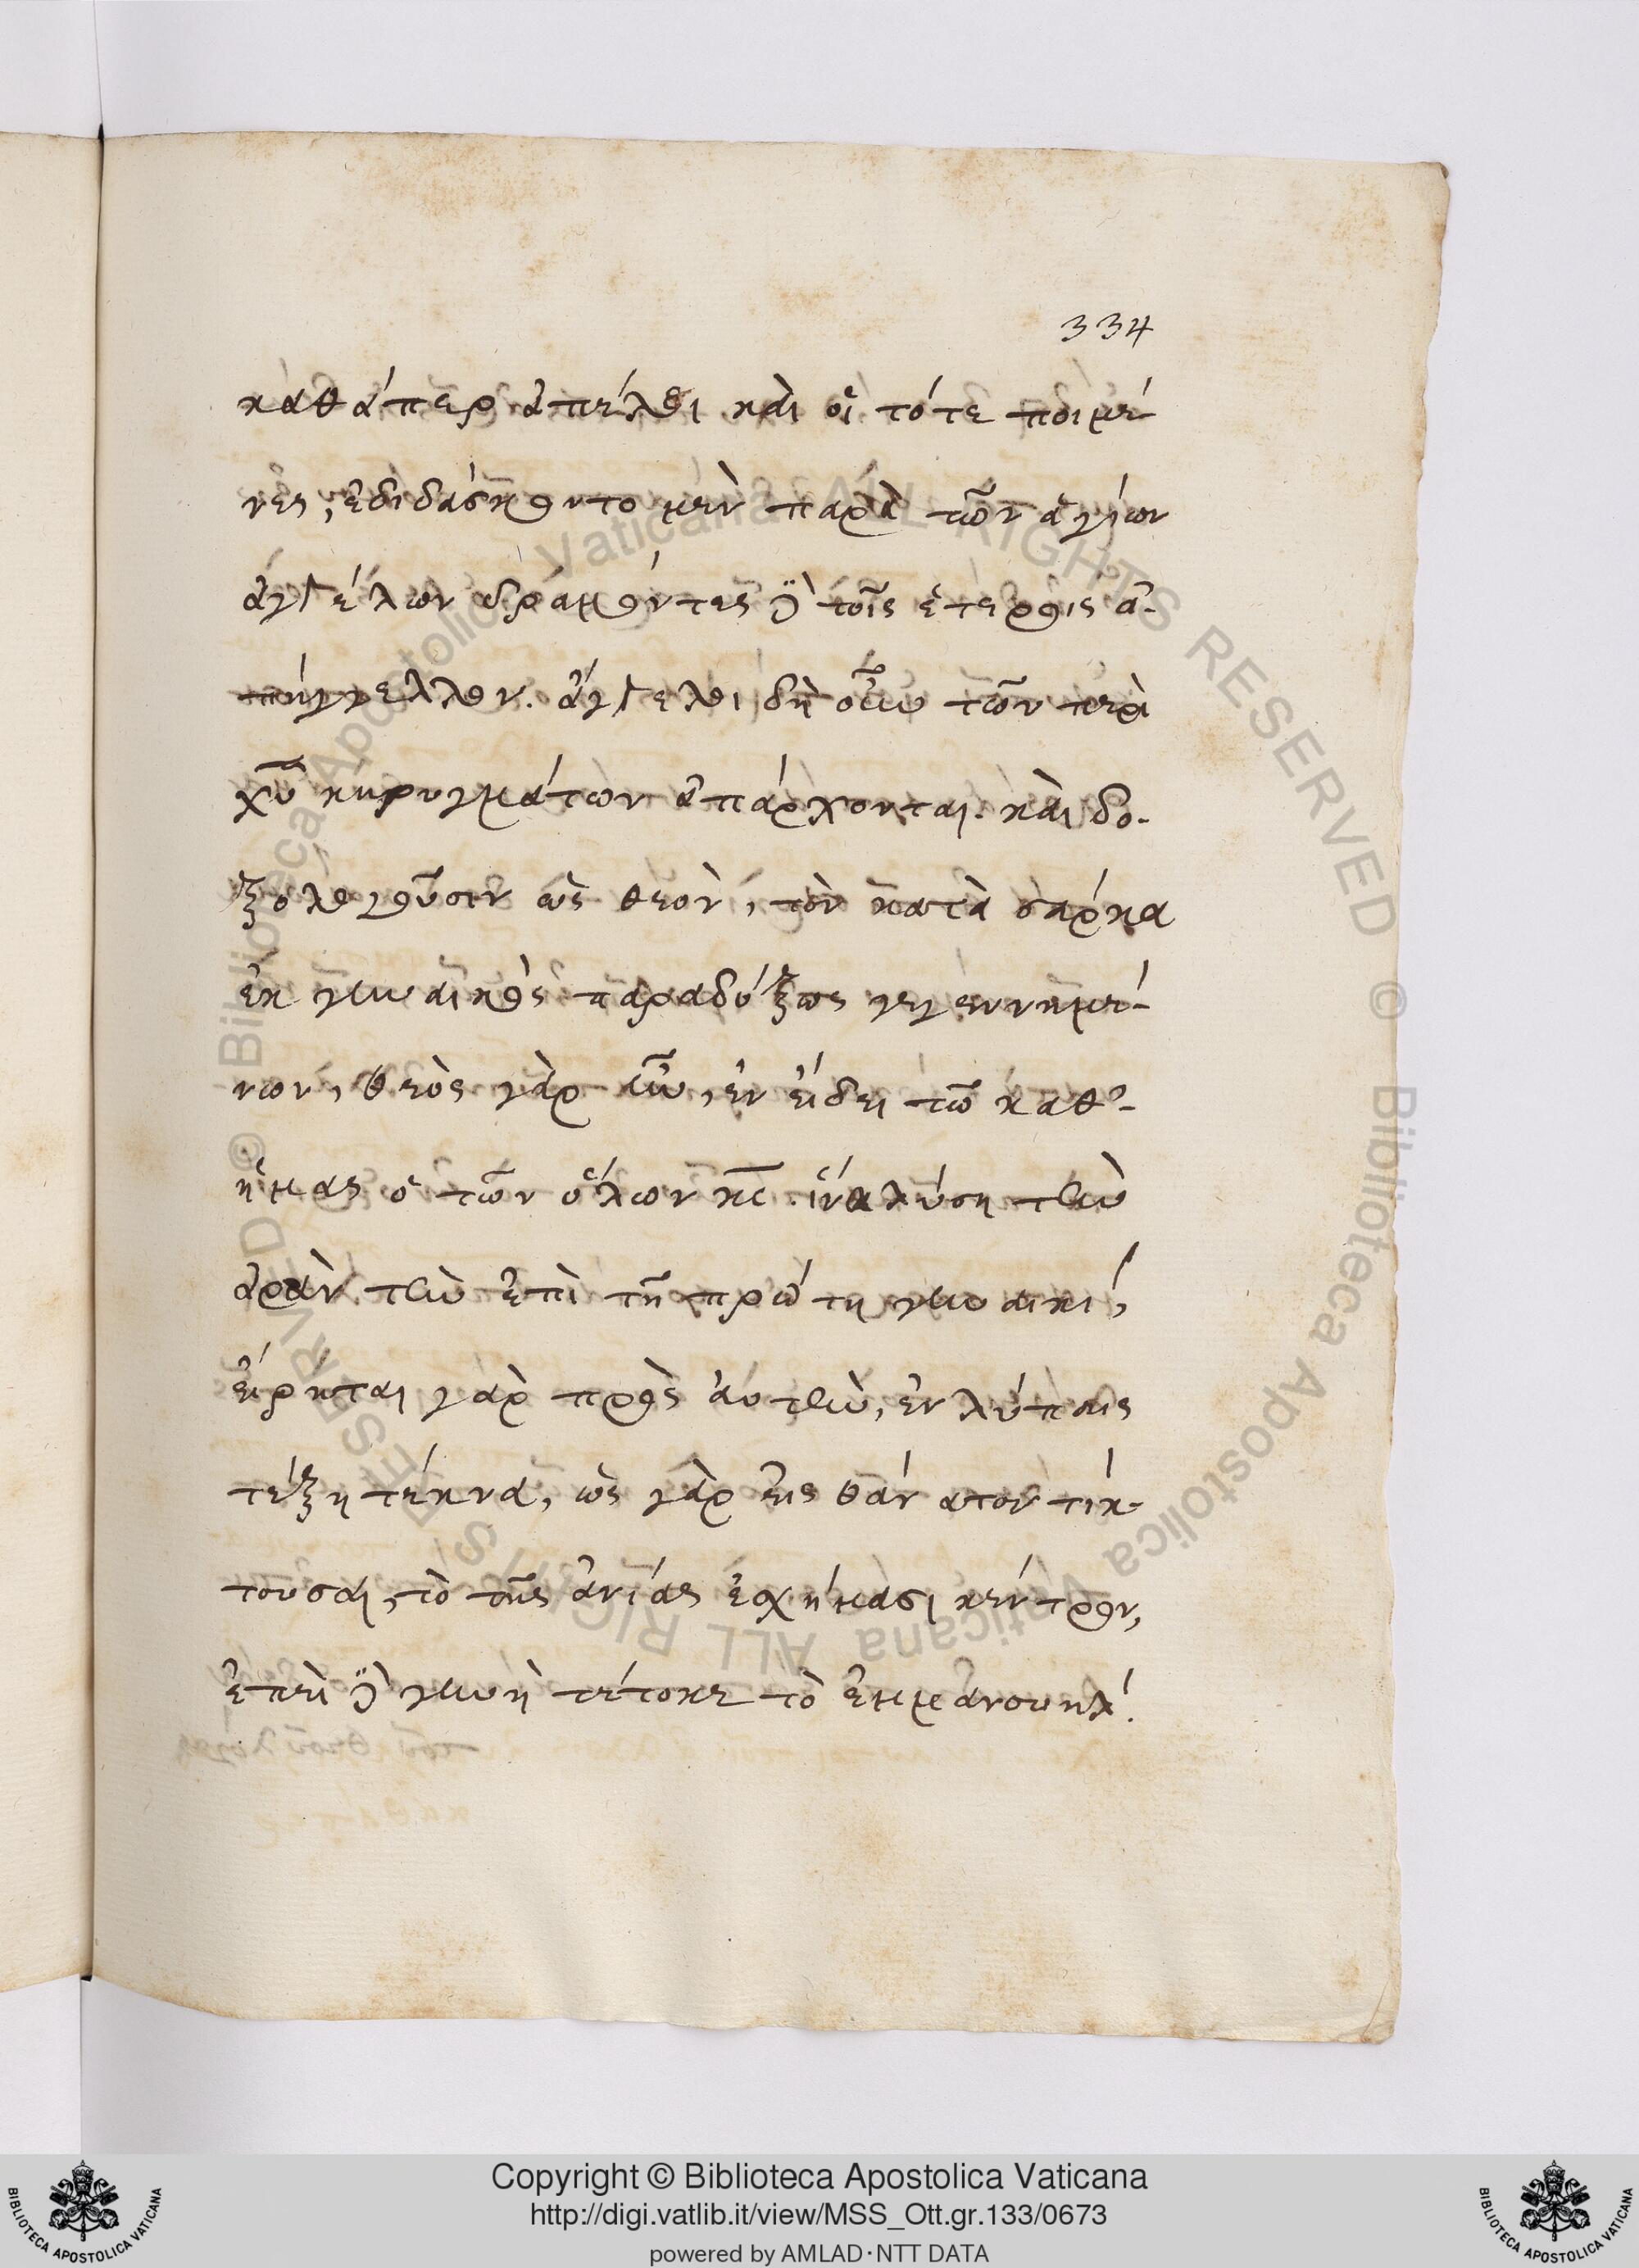 334
καθάπερ ἀμέλει καὶ οἱ τότε ποιμέ
νες, ἐδιδάσκοντο μὲν παρὰ τῶν ἁγίων
ἀγγέλων δραμόντες δὲ τοῖς ἑτέροις ἀ-
πήγγελλον. ἄγγελοι δὴ οὖν τῶν περὶ
χυ κηρυγμάτων ἀπάρχονται. καὶ δο-
ξολογοῦσιν ὡς θεὸν, τὸν κατὰ σάρκα
ἐκ γυναικὸς παραδόξως γεγεννημέ-
νον, θεὸς γὰρ ἦν, ἐν εἴδει τῶ καθ'-
ἡμας ὁ τῶν ὅλων κς. ἵνα λύση τὴν
ἀρὰν τὴν ἐπὶ τῆ πρώτη γυναικί,
εἴρηται γὰρ πρὸς αὐτὴν, ἐν λύπαις
τέξη τέκνα, ὡς γὰρ εἰς θάνατον τίκ-
τουσαι, τὸ τῆς ἀνίας ἐσχήκασι κέντρον,
ἐπεὶ δὲ γυνὴ τέτοκε τὸ ἐμμανουηλ.
Copyright © Biblioteca Apostolica Vaticana
http://digi.vatlib.it/view/MSS_Ott.gr.133/0673
powered by AMLAD·NTT DATA
BIBLIOTECA APOSTOLICA VATICANA
BIBLIOTECA APOSTOLICA VATICANA
© Biblioteca Apostolica Vaticana ALL RIGHTS RESERVED
© Biblioteca Apostolica Vaticana ALL RIGHTS RESERVED